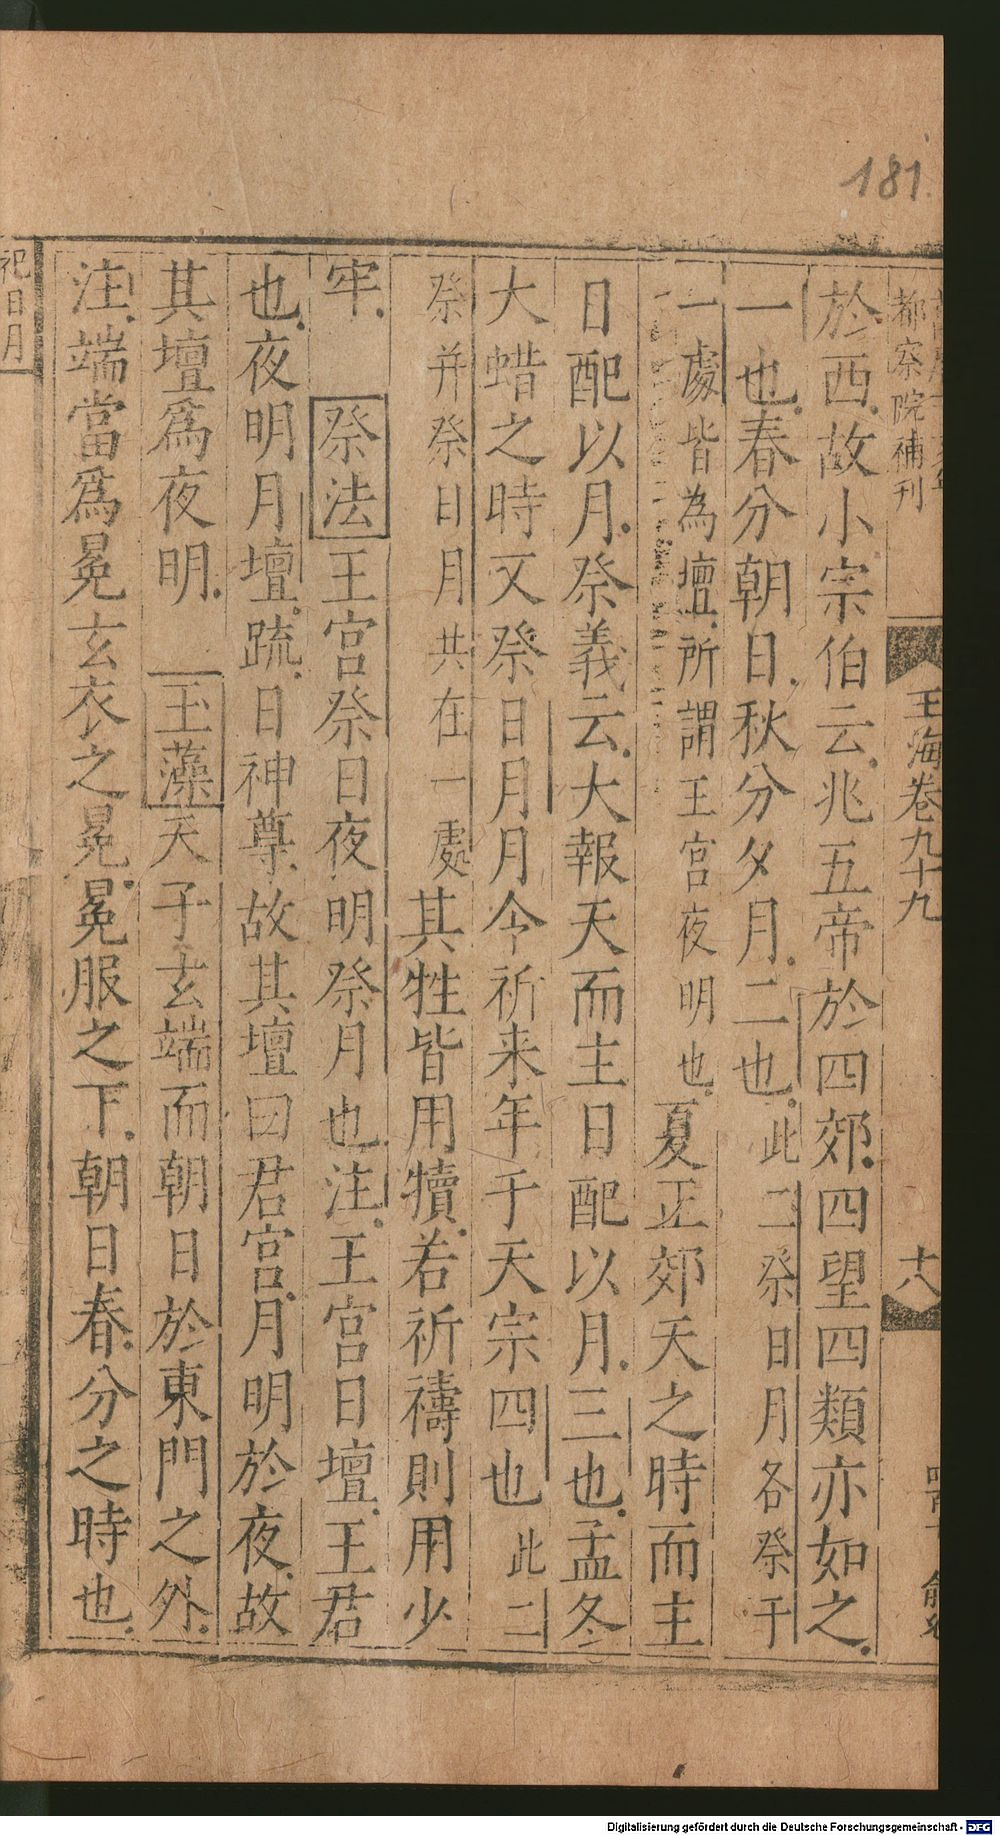 181.
都察院補刊
玉海卷九十九
十八
於西故小宗伯云兆五帝於四郊四望四類亦如之
一也春分朝日秋分夕月二也此二祭日月各祭于
一處皆為壇所謂王宮夜明也夏正郊天之時而主
日配以月祭義云大報天而主日配以月三也孟冬
大蜡之時又祭日月月令祈来年于天宗四也此二
祭并祭日月共在一處其牲皆用犢若祈禱則用少
牢祭法王宮祭日夜明祭月也注王宮日壇王君
也夜明月壇疏日神尊故其壇曰君宮月明於夜故
其壇為夜明玉藻天子玄端而朝日於東門之外
注端當為冕玄衣之冕冕服之下朝日春分之時也
祀日月
Digitalisierung gefördert durch die Deutsche Forschungsgemeinschaft - DFG